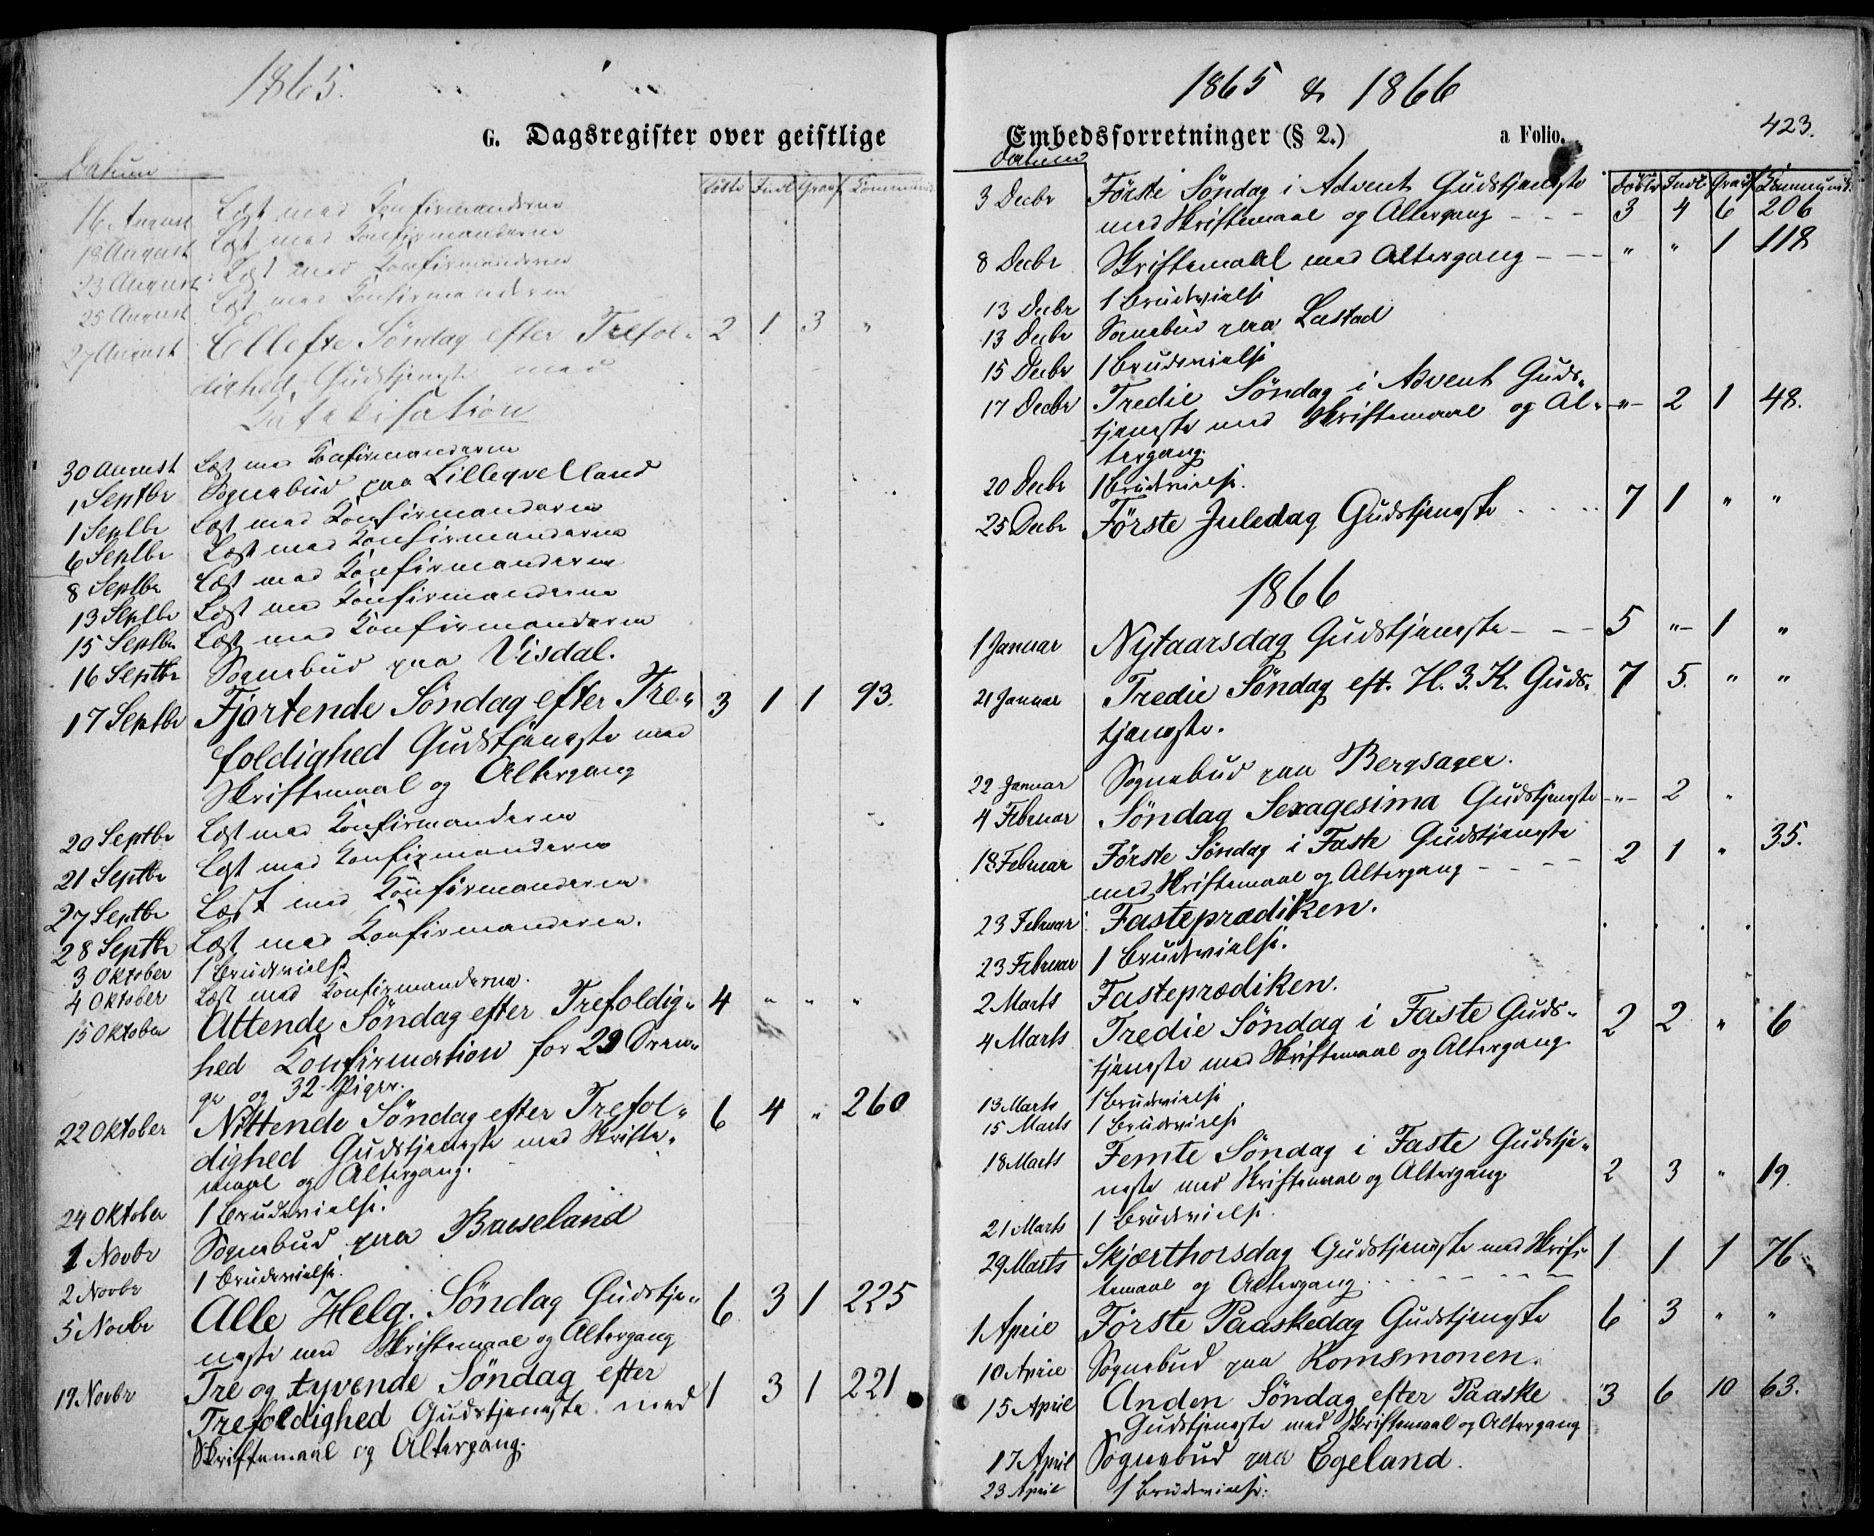 1865.
G. Dagsregister over geistlige
Datum Döbte Indl Gravf Communic
16 August Læst med Konfirmanderne
18 August Læst med Konfirmanderne
23 August Læst med Konfirmanderne
25 August Læst med Konfirmanderne
27 August Ellefte Søndag efter Trefol- 2 1 3 "
dighed Gudstjeneste med
Katekisation
30 August Læst med Konfirmanderne
1 Septbr Sognebud paa Lilleqvelland
1 Septbr Læst med Konfirmanderne
6 Septbr Læst med Konfirmanderne
8 Septbr Læst med Konfirmanderne
13 Septbr Læst med Konfirmanderne
15 Septbr Læst med Konfirmanderne
16 Septbr Sognebud paa Visdal.
17 Septbr Fjortende Søndag efter Tre- 3 1 1 93.
foldighed Gudstjeneste med
Skriftemaal og Altergang
20 Septbr Læst med Konfirmanderne
21 Septbr Læst med Konfirmanderne
27 Septbr Læst med Konfirmanderne
28 Septbr Læst med Konfirmanderne.
3 Oktober 1 Brudevielse
4 Oktober Læst med Konfirmanderne.
15 Oktober Attende Søndag efter Trefoldig- 4 " " "
hed Konfirmation for 29 Dren-
ge og 32 Piger.
22 Oktober Nittende Søndag efter Trefol- 6 4 " 260
dighed Gudstjeneste med Skrifte-
maal og Altergang.
24 Oktober 1 Brudevielse.
1 Novbr Sognebud paa Baeseland
2 Novbr 1 Brudevielse.
5 Novbr Alle Helg. Søndag Gudstje- 6 3 1 225
neste med Skriftemaal og Altergang
19 Novbr Tre og tyvende Søndag efter 1 3 1 221
Trefoldighed Gudstjeneste med
Skriftemaal og Altergang.
1865 & 1866
Embedsforretninger (§ 2.) a Folio. 423.
Datum Döbte Indl Gravf Communic.
3 Decbr Første Søndag i Advent Gudstjeneste
med Skriftemaal og Altergang - - - 3 4 6 206
8 Decbr Skriftemaal med Altergang - - - " " 1 118
13 Decbr 1 Brudevielse
13 Decbr Sognebud paa Lastad
15 Decbr 1 Brudevielse
17 Decbr Tredie Søndag i Advent Guds-
tjeneste med Skriftemaal og Al- - " - 2 1 48.
tergang.
20 Decbr 1 Brudevielse.
25 Decbr Første Juledag Gudstjeneste . . . . 7 1 " "
1866
1 Januar Nytaarsdag Gudstjeneste - - - 5 " 1 "
21 Januar Tredie Søndag eft. H. 3. K. Guds- 7 5. " "
tjeneste.
22 Januar Sognebud paa Bergsager.
4 Februar Søndag Sexagesima Gudstjeneste - " - 2 "
18 Februar Første Søndag i Faste Gudstjeneste
med Skriftemaal og Altergang - - - - 2 1 " 35.
23 Februar Fasteprædiken.
23 Februar 1 Brudevielse.
2 Marts Fasteprædiken.
4 Marts Tredie Søndag i Faste Guds- 2 2 " 6
tjeneste med Skriftemaal og Altergang
13 Marts 1 Brudevielse
15 Marts 1 Brudevielse
18 Marts Femte Søndag i Faste Gudstje-
neste med Skriftemaal og Altergang 2 3 " 19.
21 Marts 1 Brudevielse.
29 Marts Skjærthorsdag Gudstjeneste med Skrif- 1 1 1 76
temaal og Altergang . - - - - - - -
1 April Første Paaskedag Gudstjeneste 6 3 " "
10 April Sognebud paa Romsmonen.
15 April Anden Søndag efter Paaske 3 6 10 63.
Gudstjeneste med Skriftemaal og Altergang
17 April Sognebud paa Egeland.
23 April 1 Brudevielse.